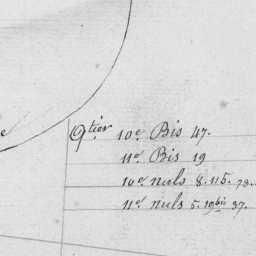 e
Qtier 10e Bis 47.
11e Bis 19
10e nuls 8. 115. 73.
11e nuls 5. 19bis 37.